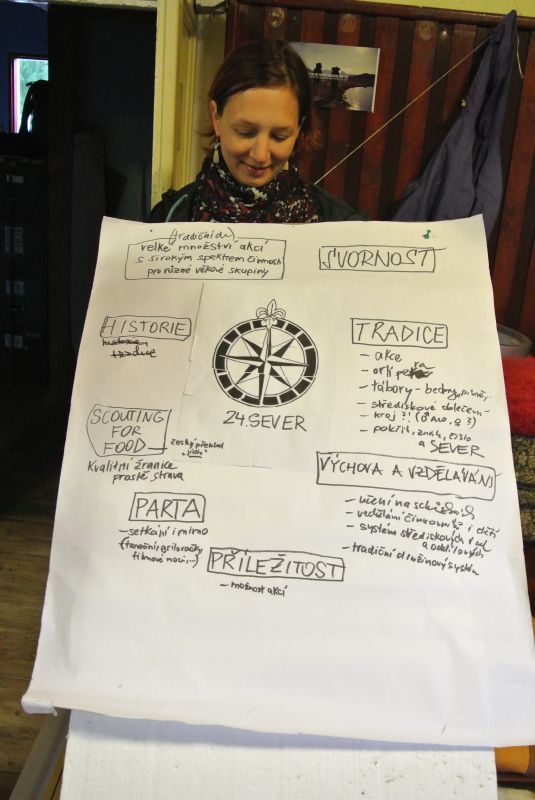 (tradičních)
velké množství akcí
s širokým spektrem činností
pro různé věkové skupiny
SVORNOST
HISTORIE
historie
tradice
24. SEVER
TRADICE
- akce
- orlí pera
- tábory - bedny,
- střediskové oblečení
- kroj?! (♂ ANO, ♀ ?)
- pokřik, znak, číslo
a SEVER
SCOUTING
FOR
FOOD
český překlad
"jídlo"
Kvalitní žranice
prostě strava
VÝCHOVA A VZDĚLÁVÁNÍ
- učení na schůzkách
- vzdělání činovníků i dětí
- systém střediskových rad
a oddílových
- tradiční družinový systém
PARTA
- setkání i mimo
(taneční, grilovačky
filmové noci,...)
PŘÍLEŽITOST
- možnost akcí